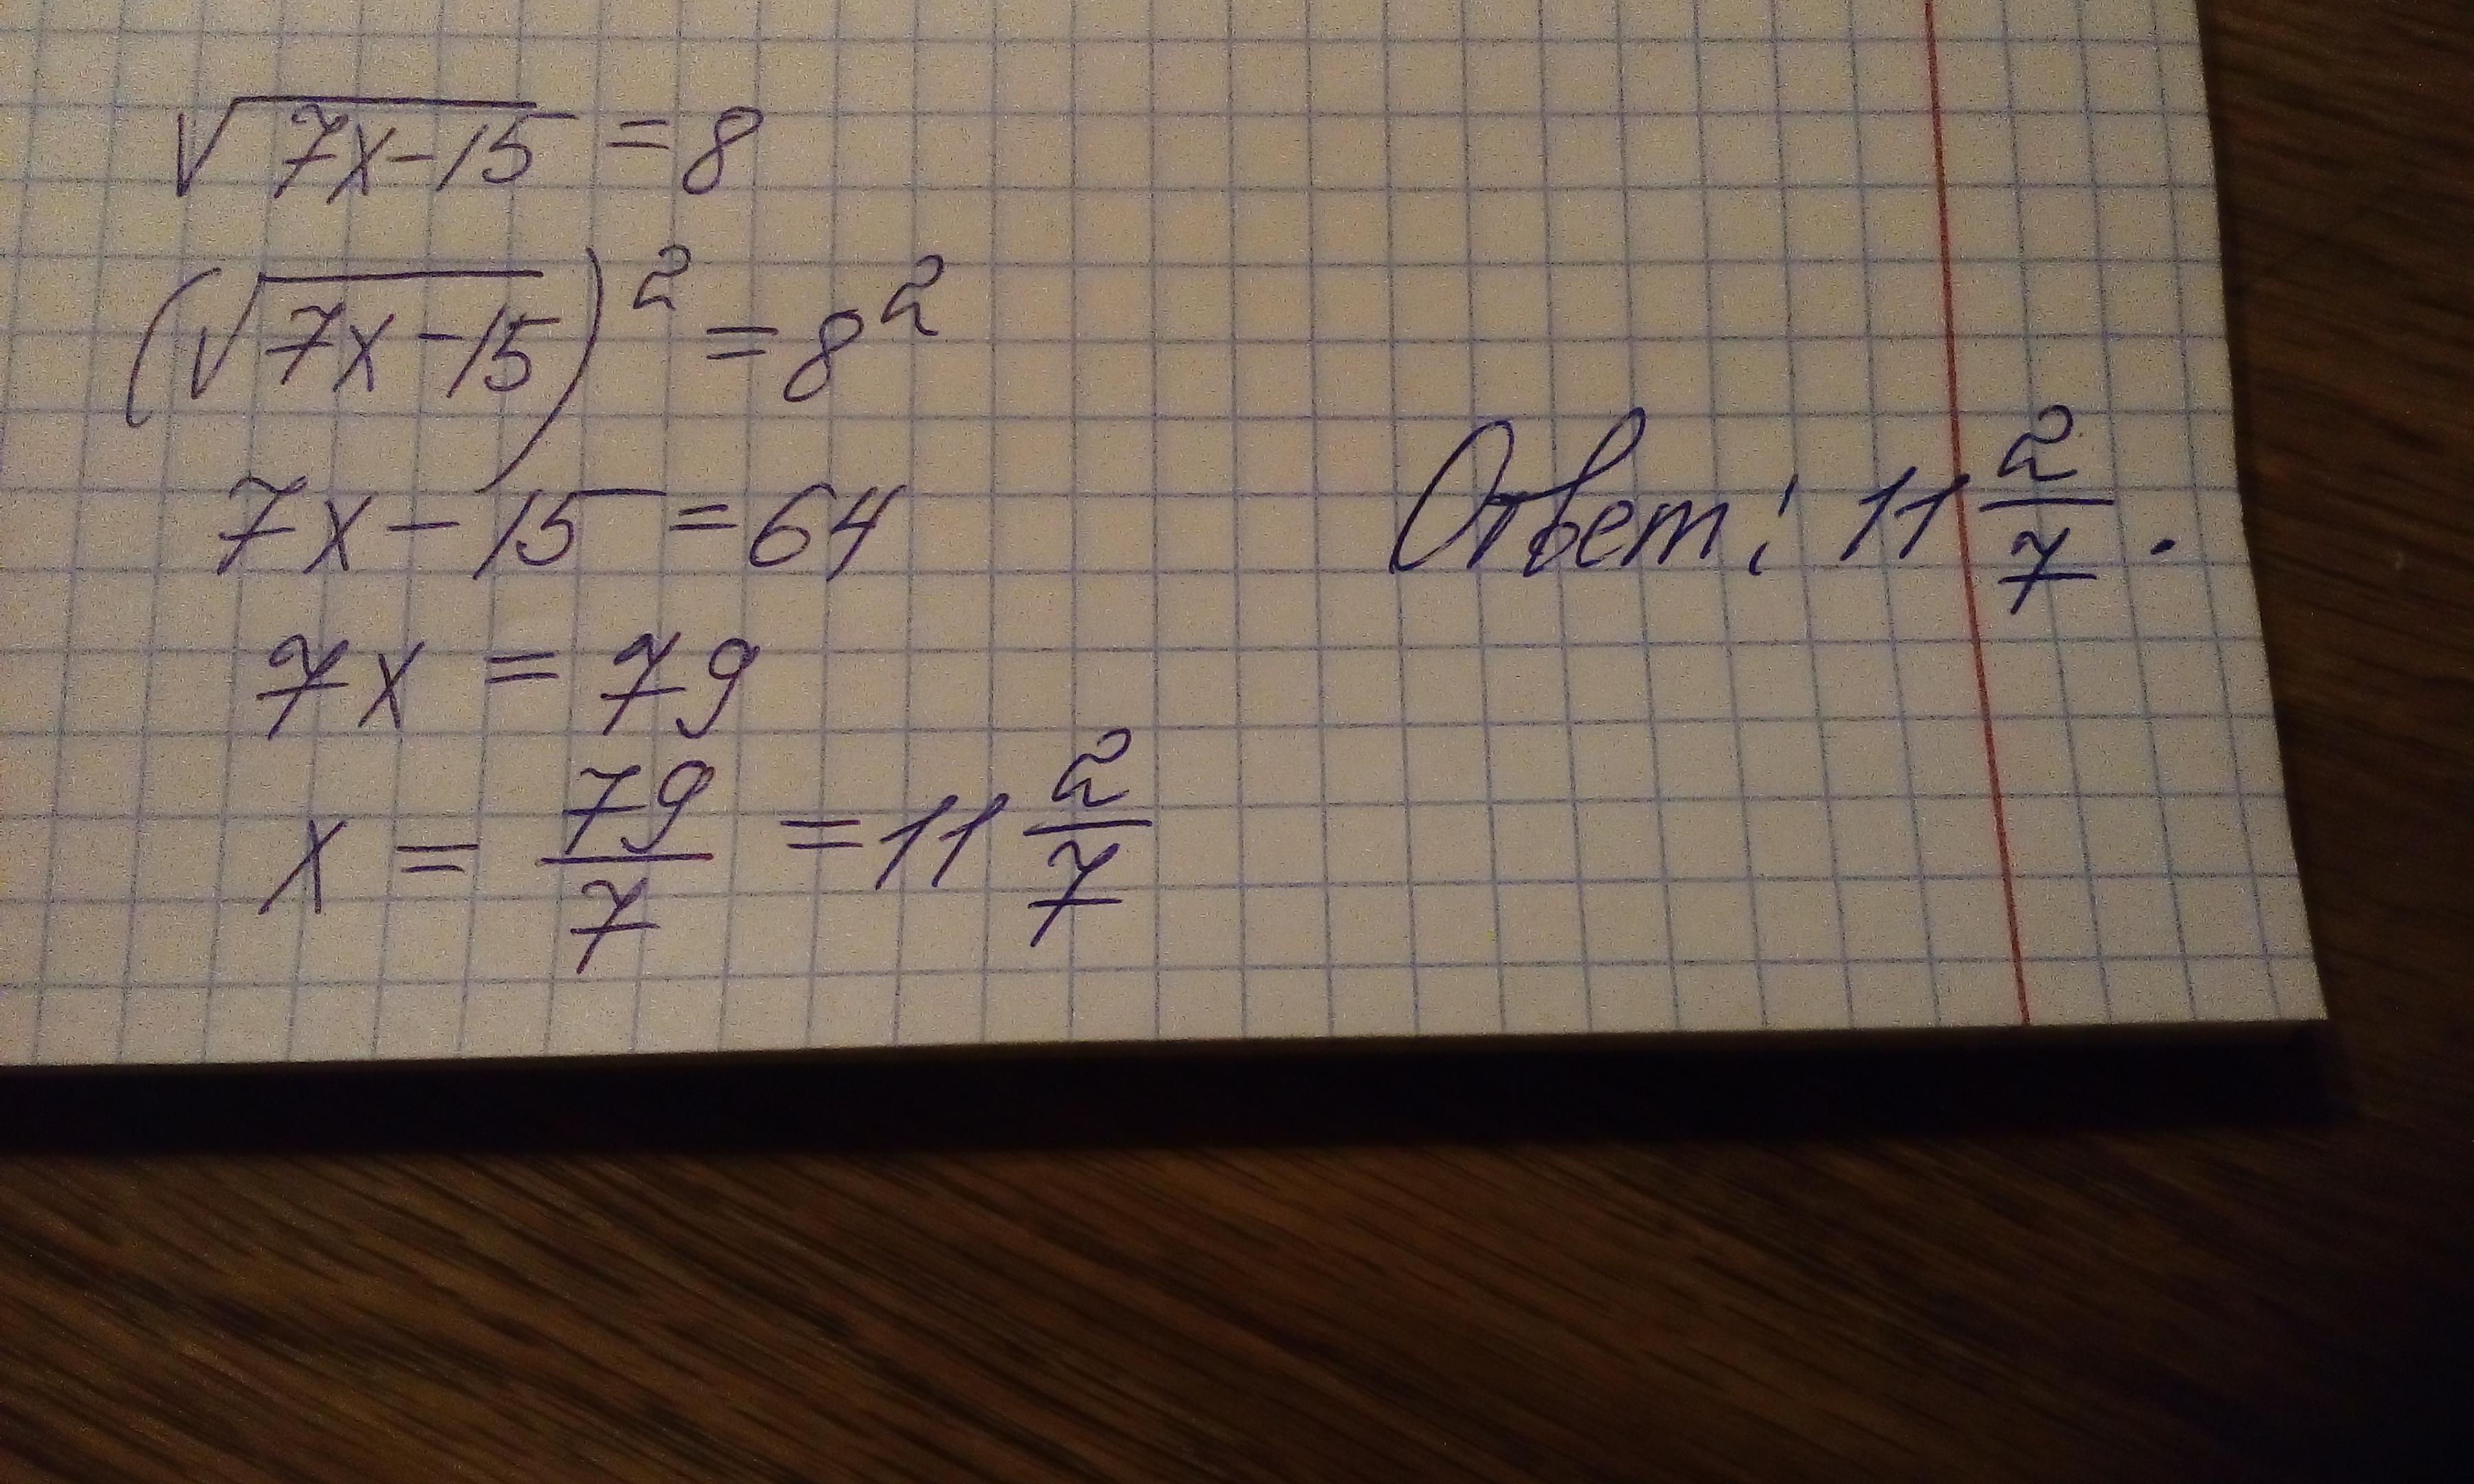 √(7x-15) = 8
(√(7x-15))² = 8²
7x - 15 = 64
7x = 79
x = 79/7 = 11 2/7
Ответ: 11 2/7.